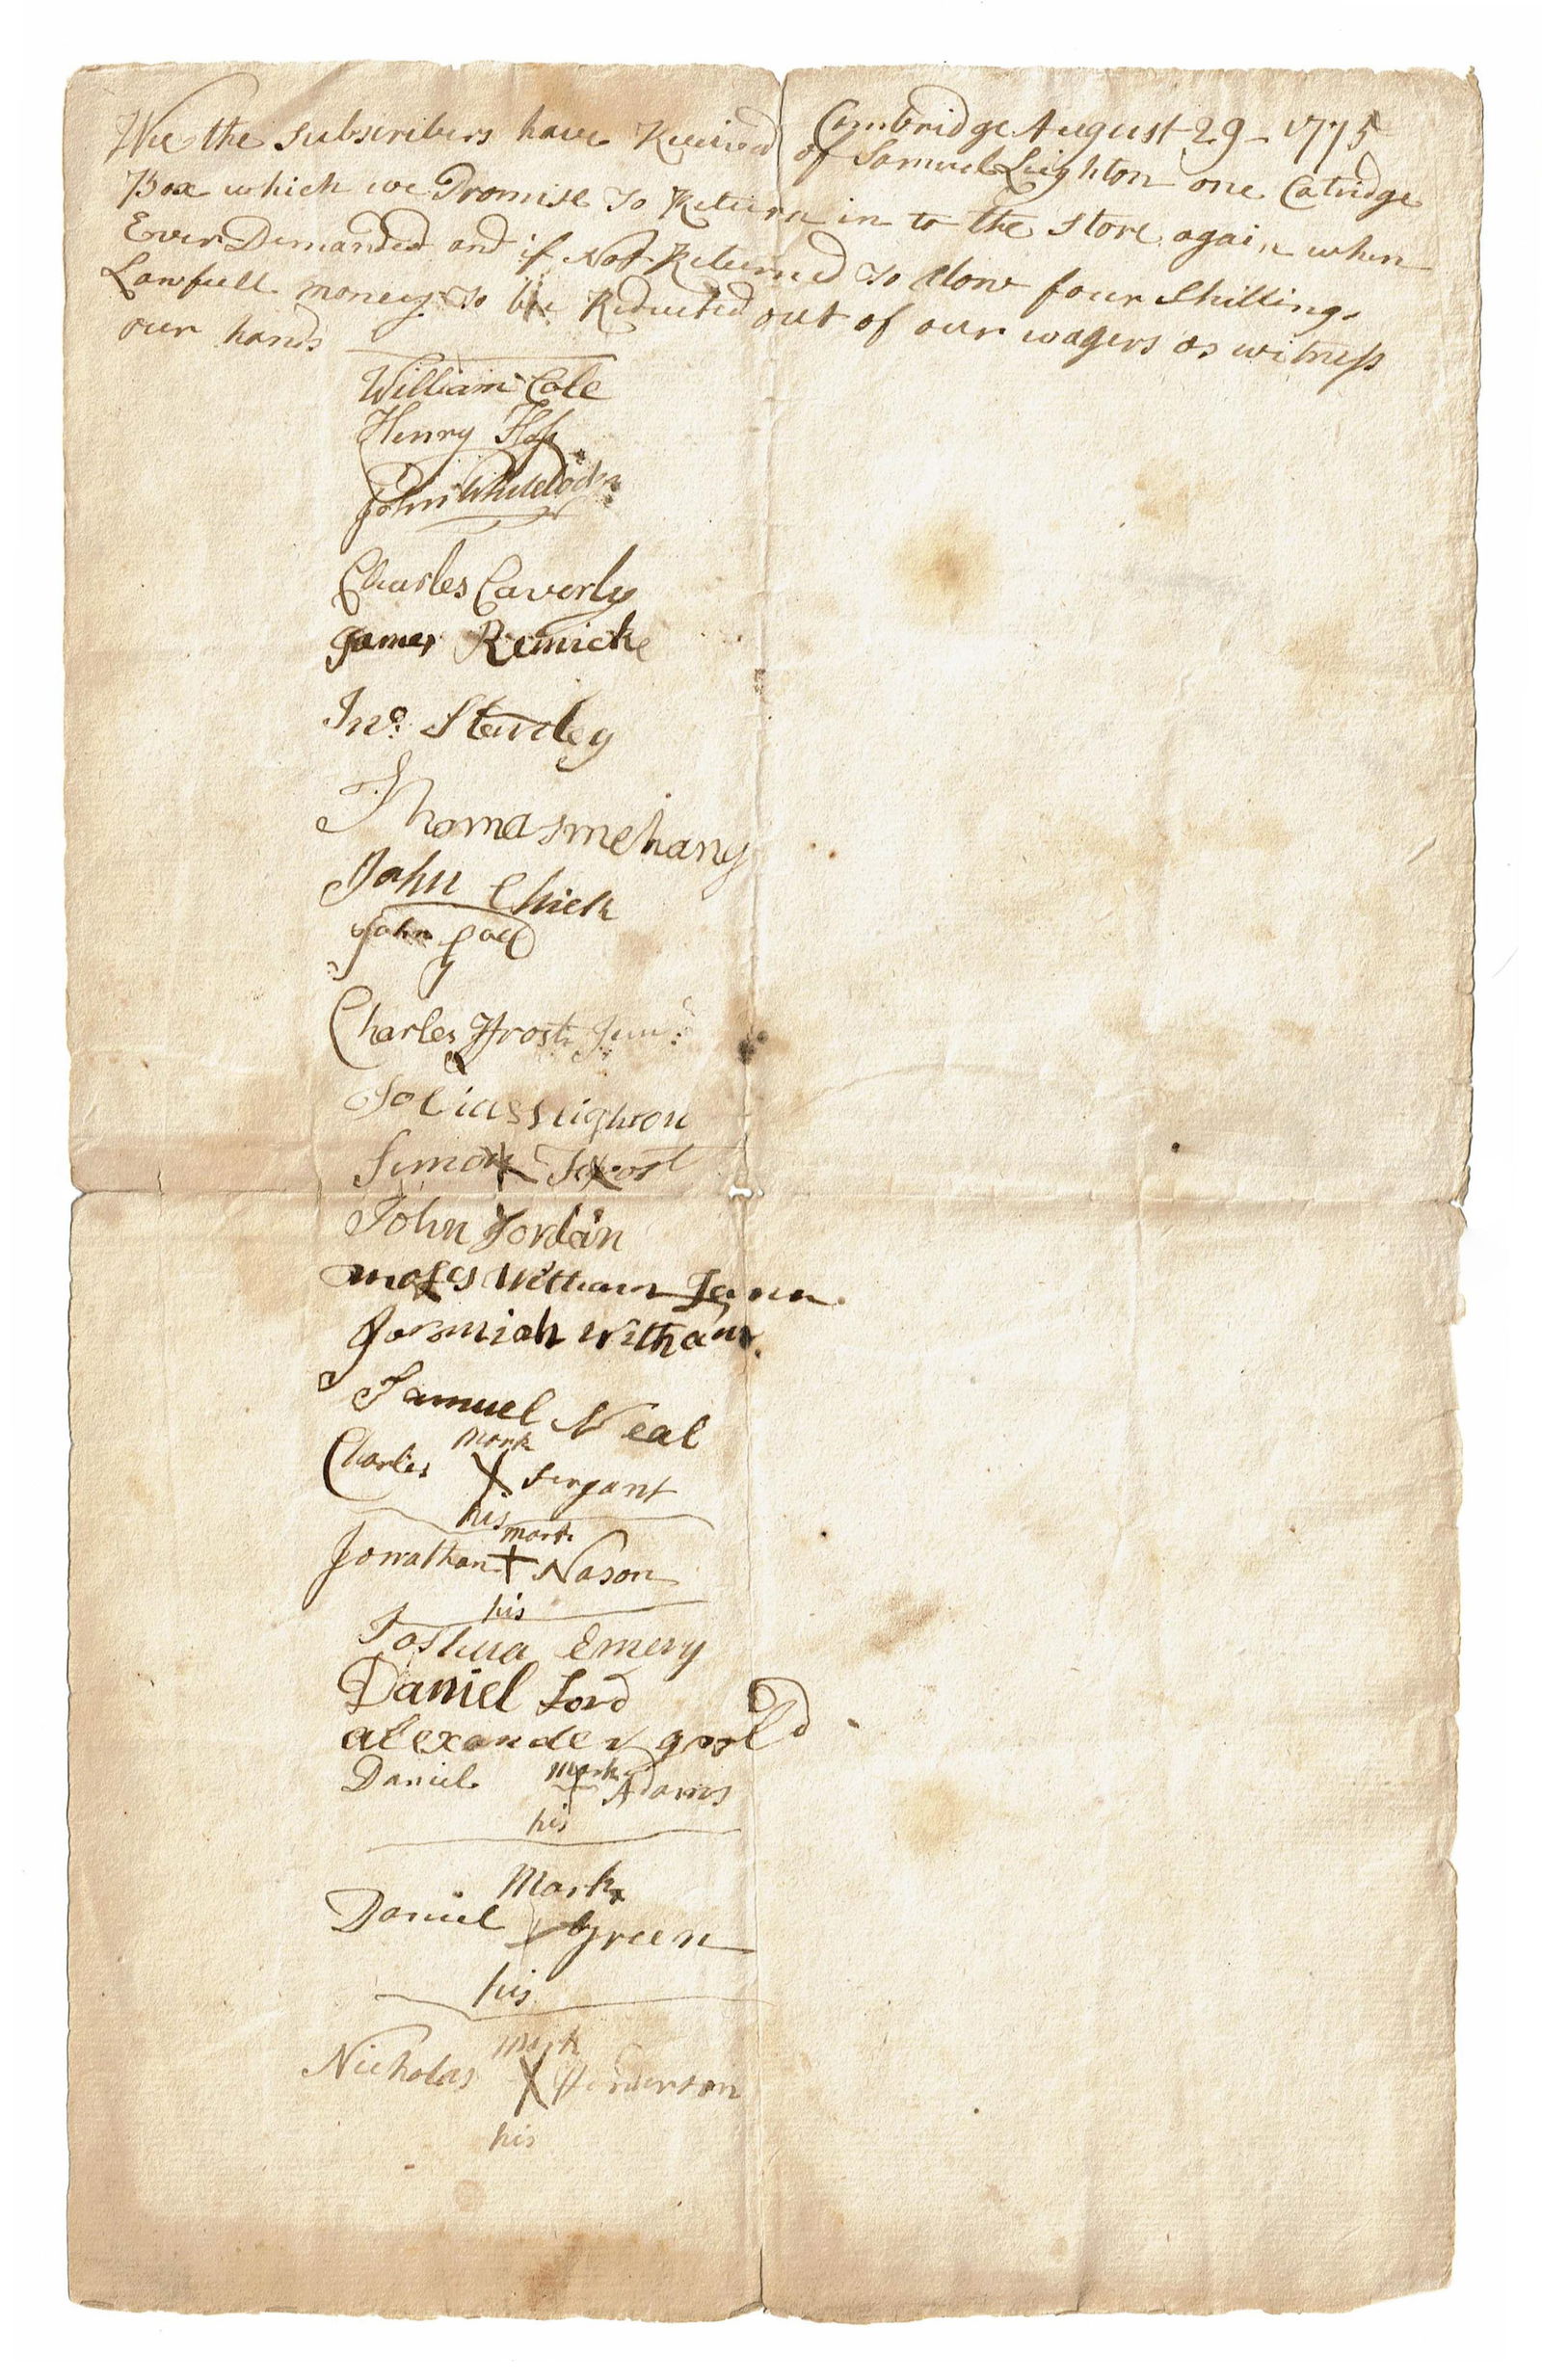 Cambridge August 29 - 1775
Wee the subscribers have Received of Samuel Leighton one Catridge
Box which we Promise To Return in to the store again when
Ever Demanded and if Not Returned To Alow four Shillings
Lawfull money To be Reducted out of our wagers as witness
our hands
William Cole
Henry
John Whitelock
Charles Caverly
James Remick
Jno. Stavley
Thomas mehany
John Chick
John
Charles Frost Junr.
Tobias Leighton
Simon Frost
John Jordan
moses William
Jeremiah Witham
Samuel Neal
mark
Charles X Sergant
his
mark
Jonathan + Nason
his
Joshua Emery
Daniel Lord
alexander goold
mark
Daniel + Adams
his
Mark
Daniel Green
his
mark
Nicholas X Henderson
his